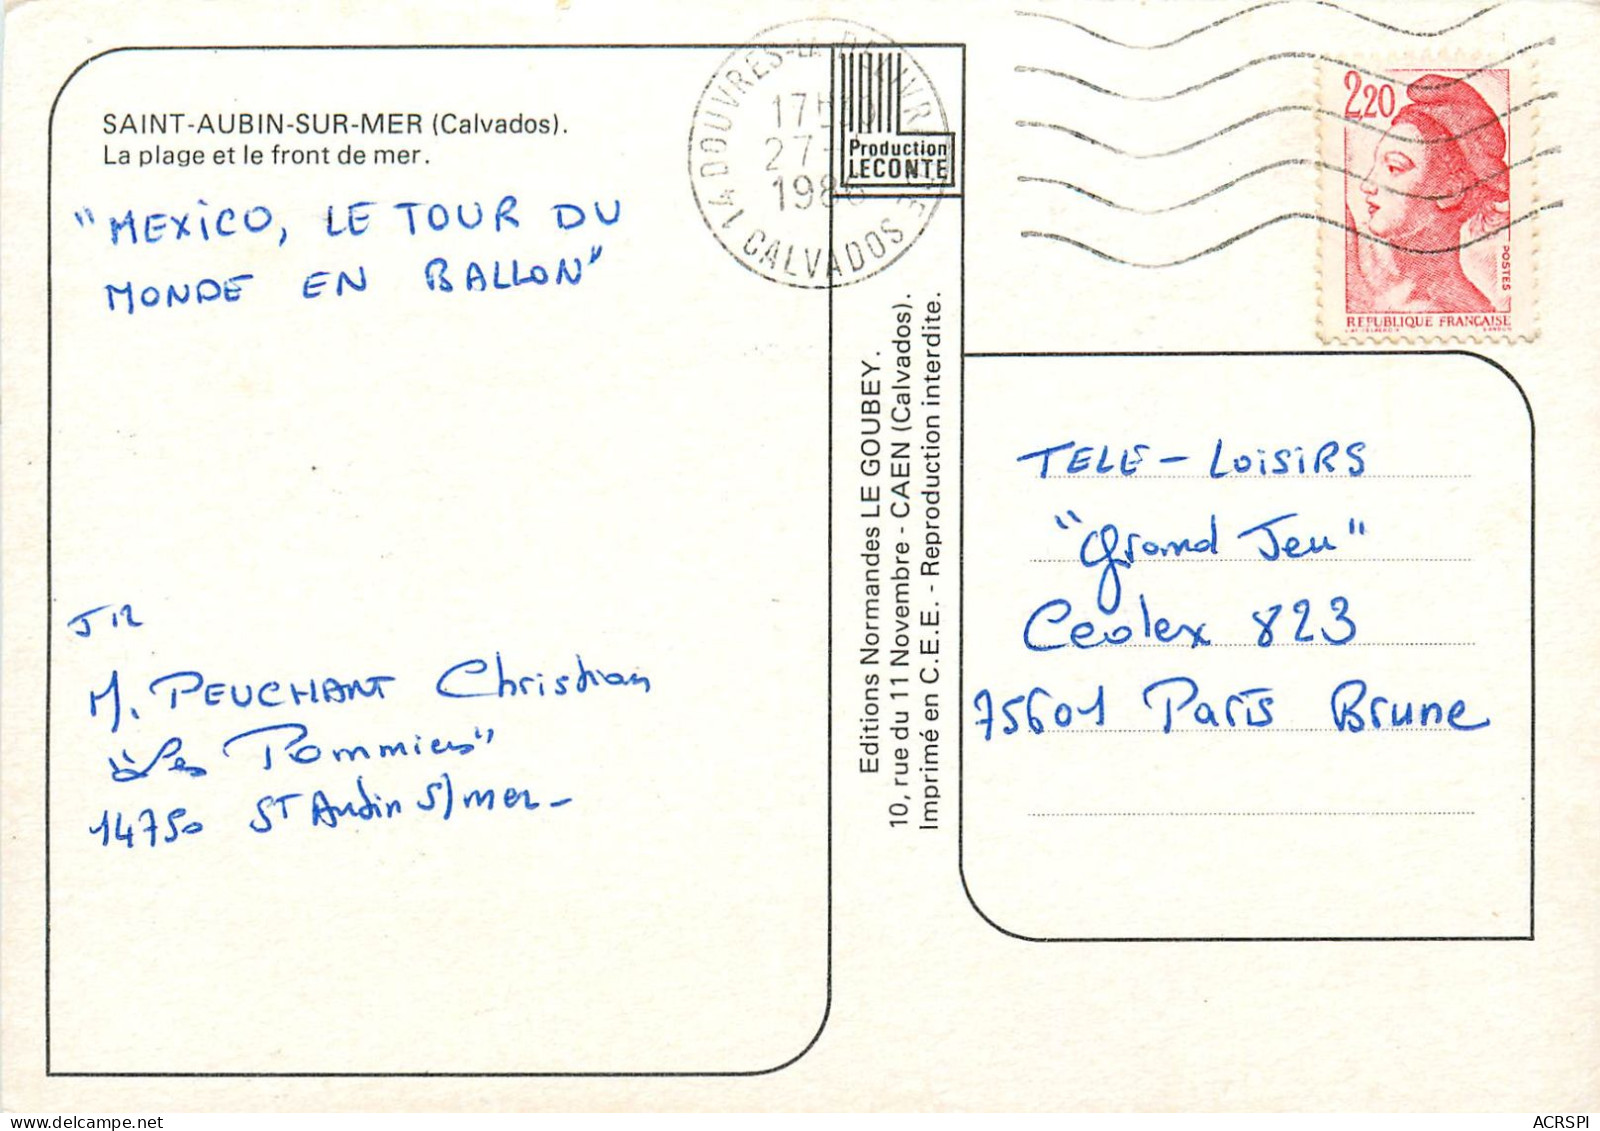 SAINT-AUBIN-SUR-MER (Calvados).
La plage et le front de mer.
"MEXICO, LE TOUR DU
MONDE EN BALLON"
M. PEUCHANT Christian
"Les Pommiers"
14750 ST Aubin S/mer-
14 DOUVRES-LA DELIVRANDE
17H30
27-
1986
CALVADOS
Production
LECONTE
Editions Normandes LE GOUBEY.
10, rue du 11 Novembre - CAEN (Calvados).
Imprimé en C.E.E. - Reproduction interdite.
2,20
POSTES
REPUBLIQUE FRANÇAISE
TELE-LOISIRS
"Grand Jeu"
Cedex 823
75601 Paris Brune
ACRSPI